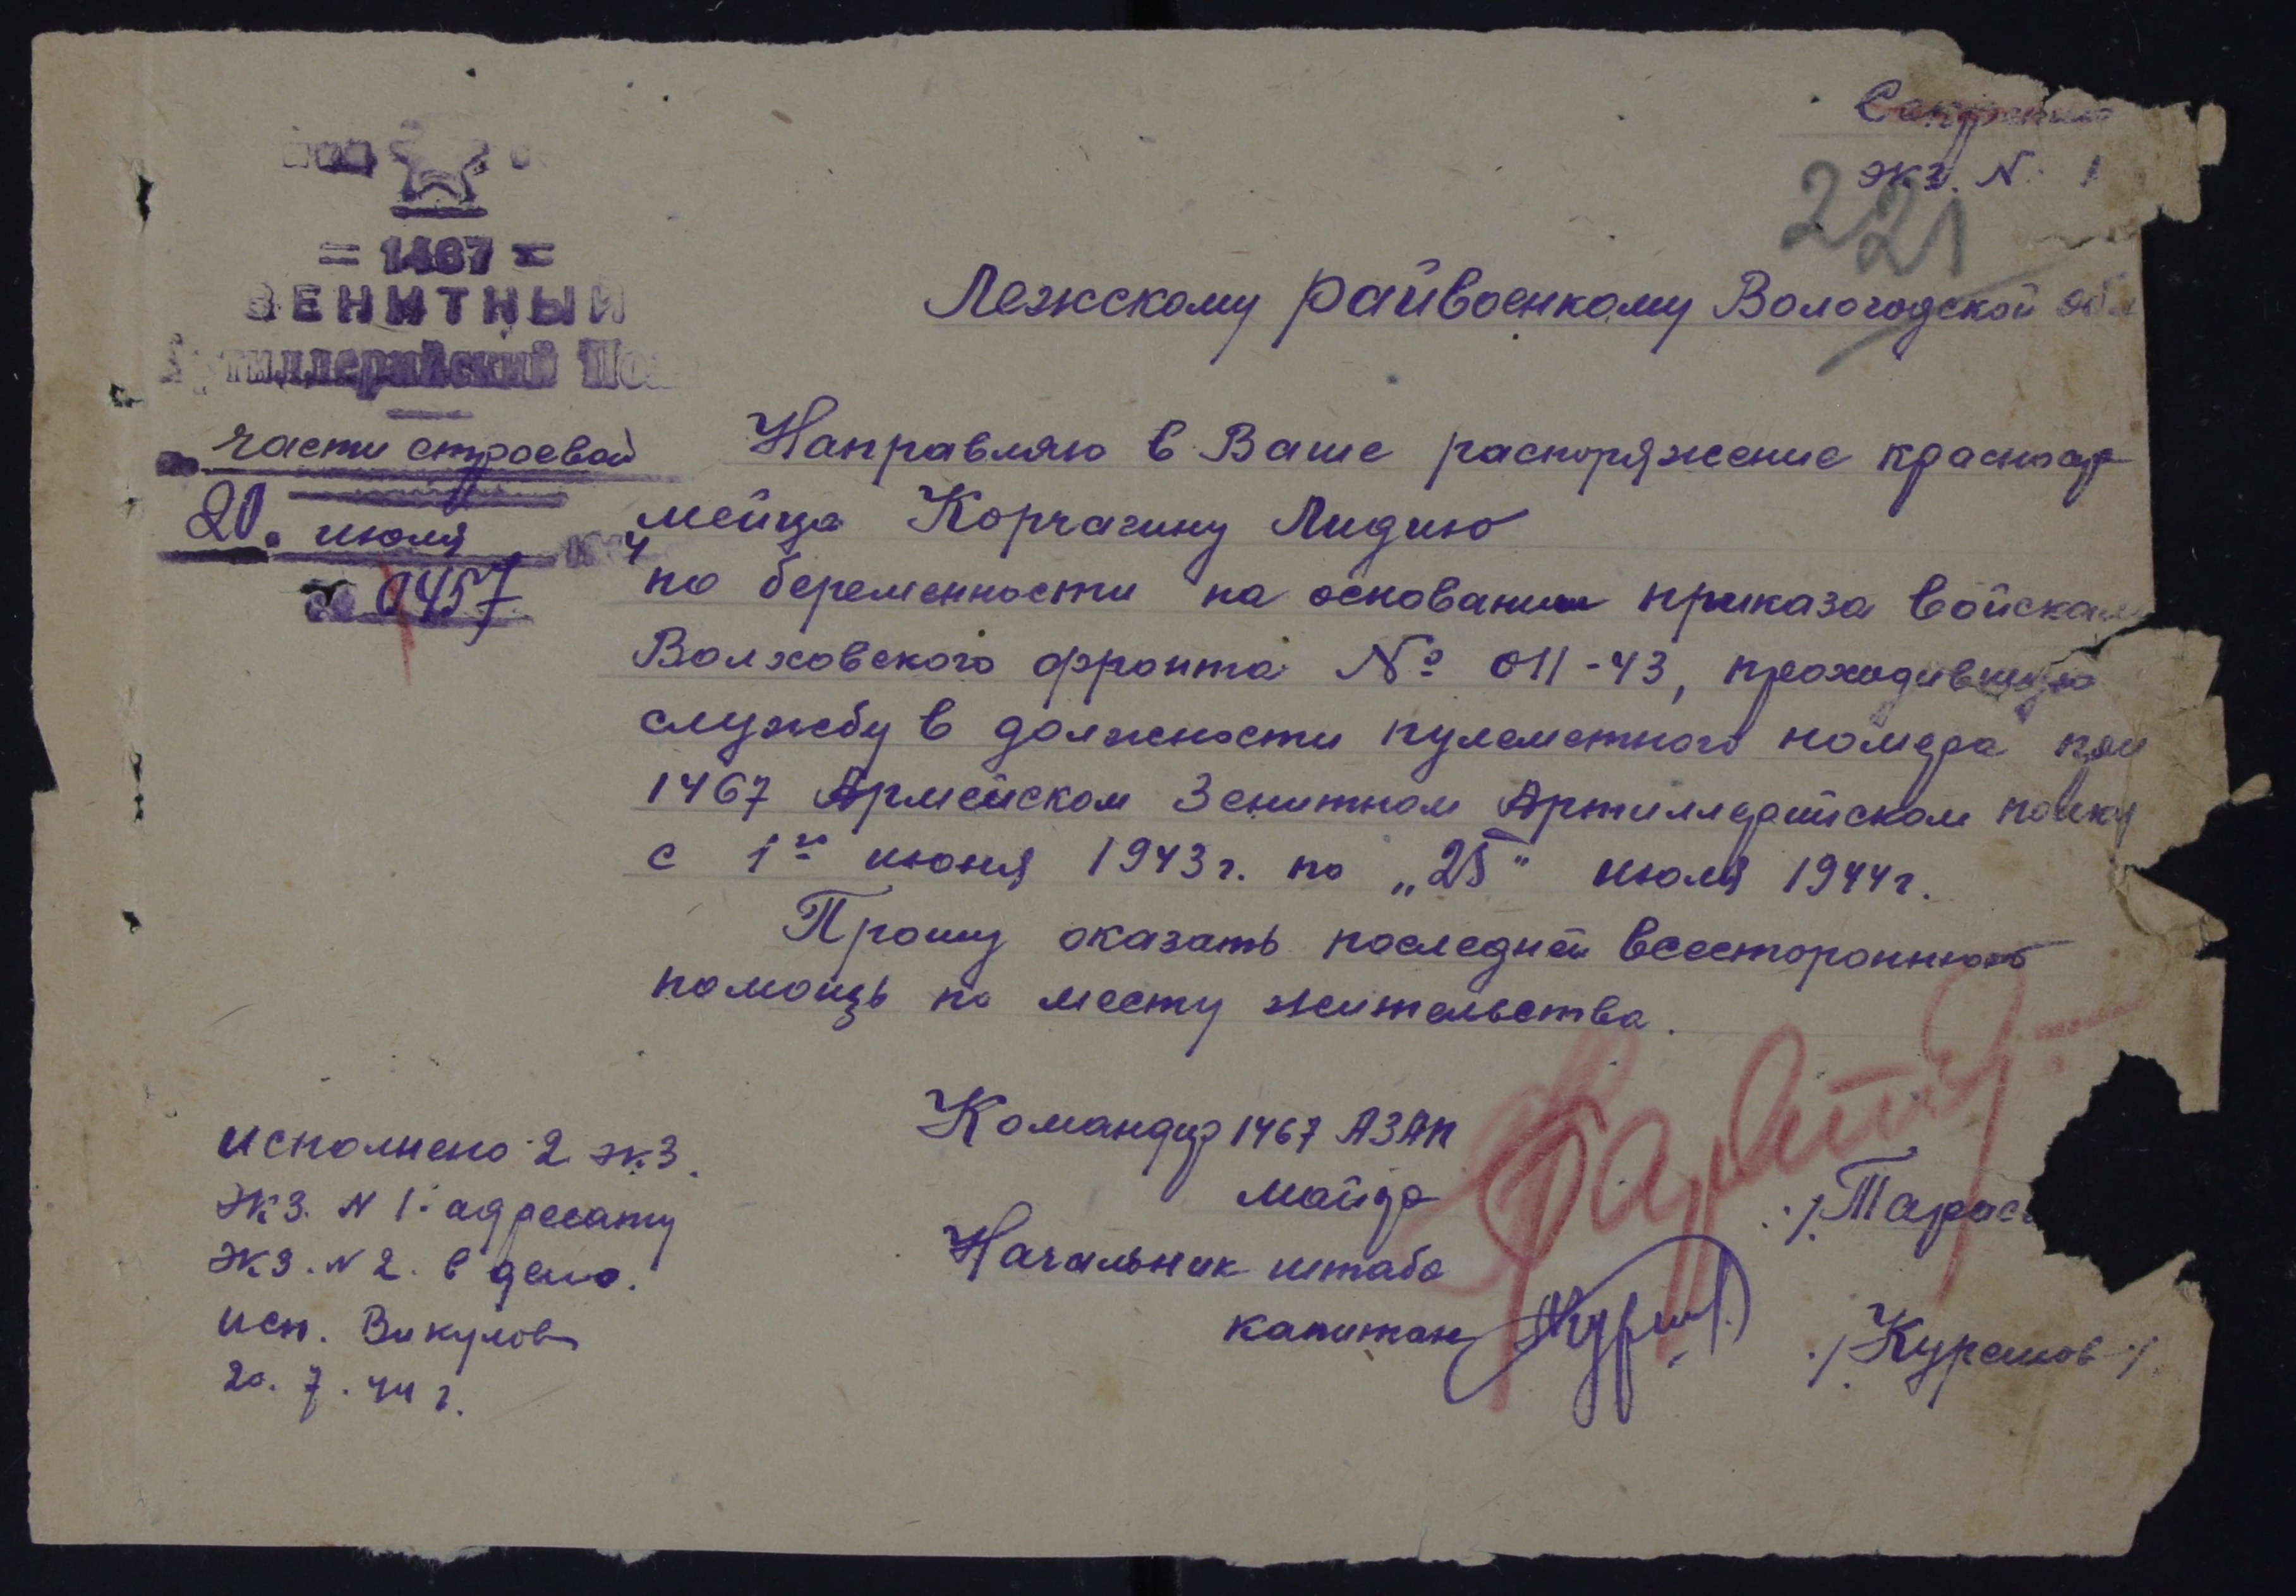 Секретно
экз. N. 1
221
= 1467 =
ЗЕНИТНЫЙ
Артиллерийский Пол
части строевой
20. июля
4
0457
Лежскому райвоенкому Вологодской обл
Направляю в Ваше распоряжение красноар
мейца Корчагину Лидию
по беременности на основании приказа войскам
Волховского фронта № 011-43, проходившую
службу в должности пулеметного номера при
1467 Армейском Зенитном Артиллерийском полку
с 1го июня 1943г. по „25" июля 1944г.
Прошу оказать последней всестороннюю
помощь по месту жительства.
Командир 1467 АЗАП
майор /Тарас
Начальник штаба
капитан /Курсиов/
исполнено 2 экз.
экз. N 1. адресату
экз. N 2. в дело.
исп. Викулов
20. 7. 44 г.